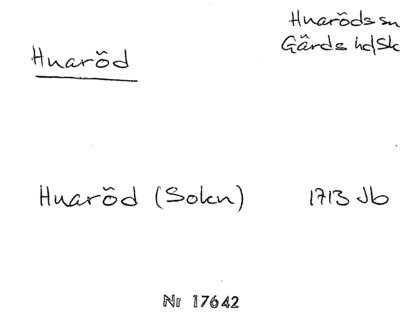 Huaröds sn
Gärds hd Sk
Huaröd
Huaröd (Sokn) 1713 Jb
Nr 17642